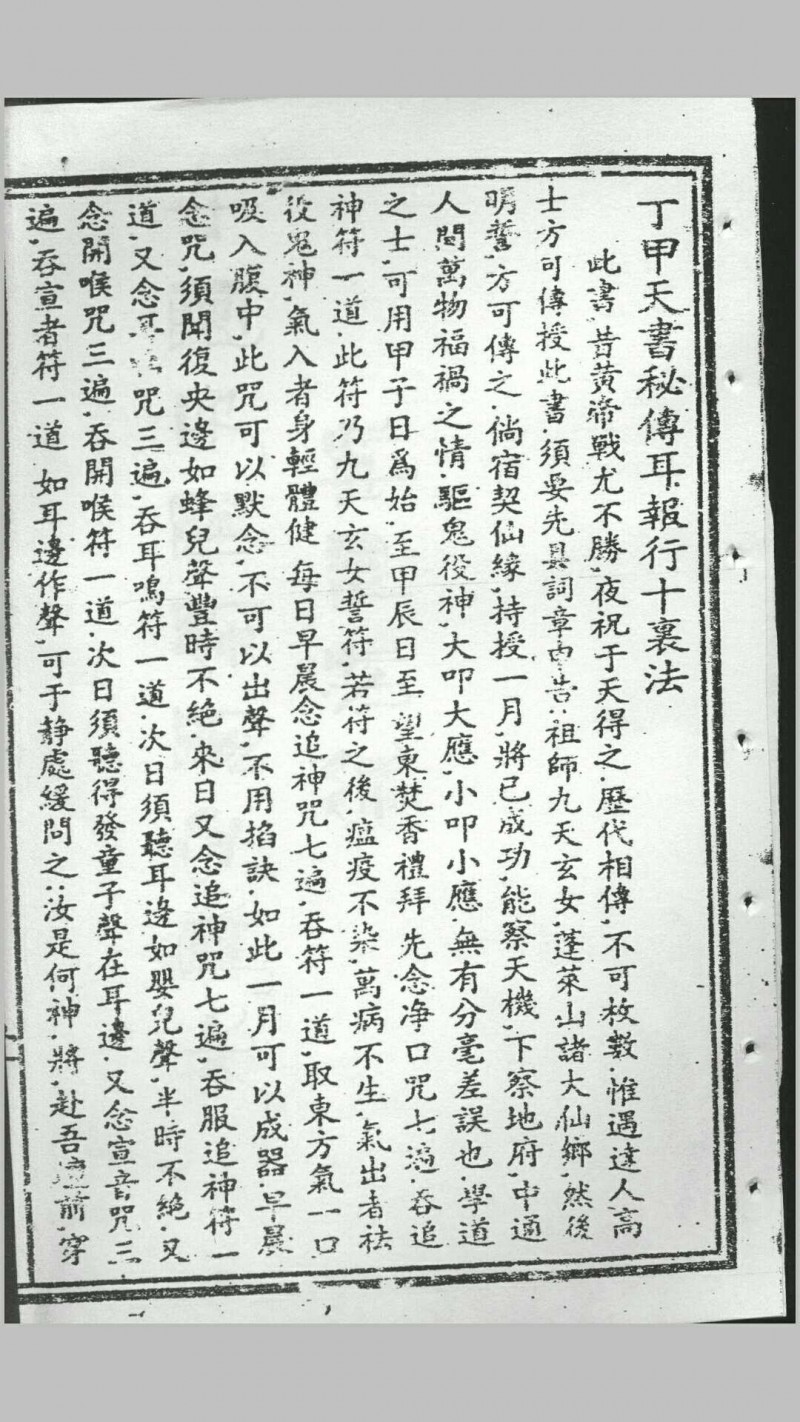 丁甲天書秘傳耳報行十裏法
此書、昔黃帝戰尤不勝、夜祝于天得之、歷代相傳、不可枚數、惟遇達人高
士方可傳授此書、須要先具詞章申告：祖師九天玄女、蓬萊山諸大仙鄉、然後
明誓、方可傳之、倘宿契仙緣、持授一月、將已成功、能察天機、下察地府、中通
人間萬物福禍之情、驅鬼役神、大叩大應、小叩小應、無有分毫差誤也、學道
之士、可用甲子日爲始、至甲辰日至、望東焚香禮拜、先念净口咒七遍、吞追
神符一道、此符乃九天玄女誓符、若符之後、瘟疫不染、萬病不生、氣出者祛
役鬼神、氣入者身輕體健、每日早晨念追神咒七遍、吞符一道、取東方氣一口
吸入腹中、此咒可以默念、不可以出聲、不用掐訣、如此一月可以成器、早晨
念咒、須聞復央邊如蜂兒聲豐時不絕、來日又念追神咒七遍、吞服追神符一
道、又念耳咒三遍、吞耳鳴符一道、次日須聽耳邊如嬰兒聲、半時不絕、又
念開喉咒三遍、吞開喉符一道、次日須聽得發童子聲在耳邊、又念宣音咒三
遍、吞宣者符一道、如耳邊作聲、可于靜處緩問之：汝是何神、將、赴吾壇前、穿